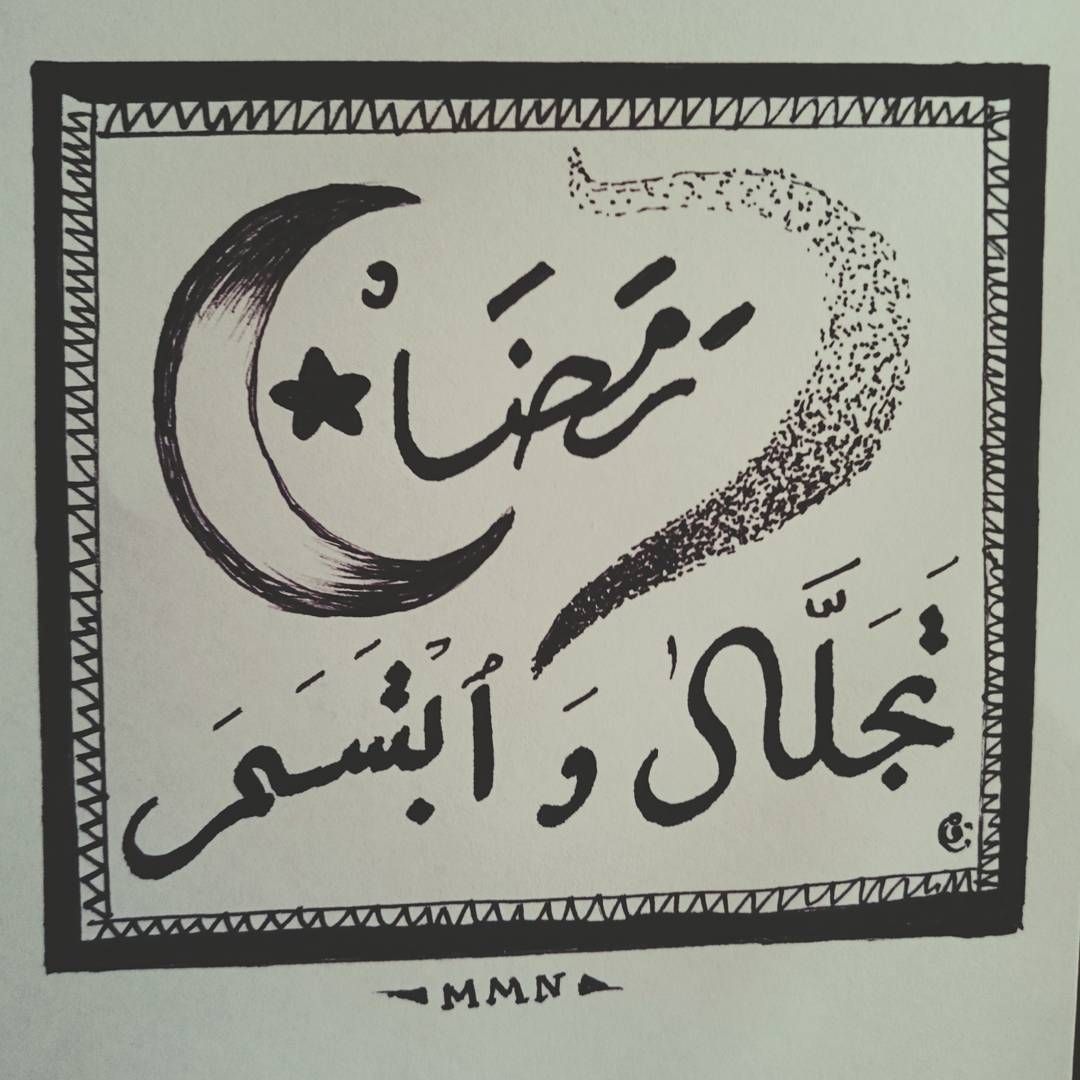 رَمَضَانْ
تَجَلَّىٰ وَ ٱبْتَسَمَ
MMN